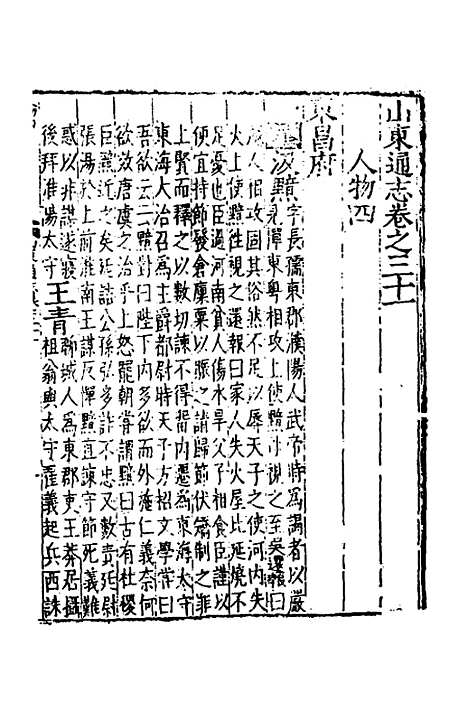 山東通志卷之三十一
人物四
東昌府
漢汲黯字長孺東郡濮陽人武帝時為謁者以嚴
見憚東粵相攻上使黯往視之至吳還報曰
越人相攻固其俗然不足以辱天子之使河内失
火上使黯往視之還報曰家人失火屋比延燒不
足憂也臣過河南貧人傷水旱父子相食臣謹以
便宜持節發倉廩粟以賑之請歸節伏矯制之罪
上賢而釋之以數切諫不得留内遷為東海太守
東海大治召為主爵都尉時天子方招文學嘗曰
吾欲云云黯對曰陛下内多欲而外施仁義奈何
欲效唐虞之治乎上怒罷朝嘗謂黯曰古有社稷
臣黯近之矣廷詰公孫弘多詐不忠又數責廷尉
張湯於上前淮南王謀反憚黯直諫守節死義難
惑以非謀遂寢
後拜淮陽太守王青聊城人為東郡吏王莽居攝
祖翁與太守翟義起兵西誅